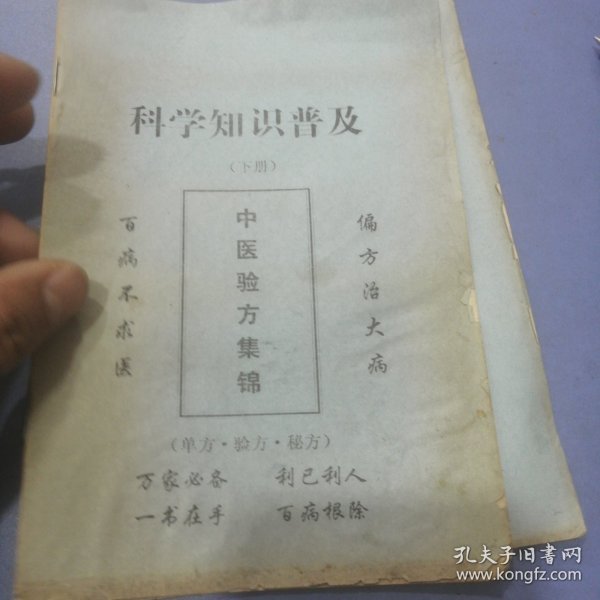 科学知识普及
（下册）
偏方治大病
中医验方集锦
百病不求医
（单方·验方·秘方）
万家必备 利己利人
一书在手 百病根除
孔夫子旧书网
www.kongfz.com